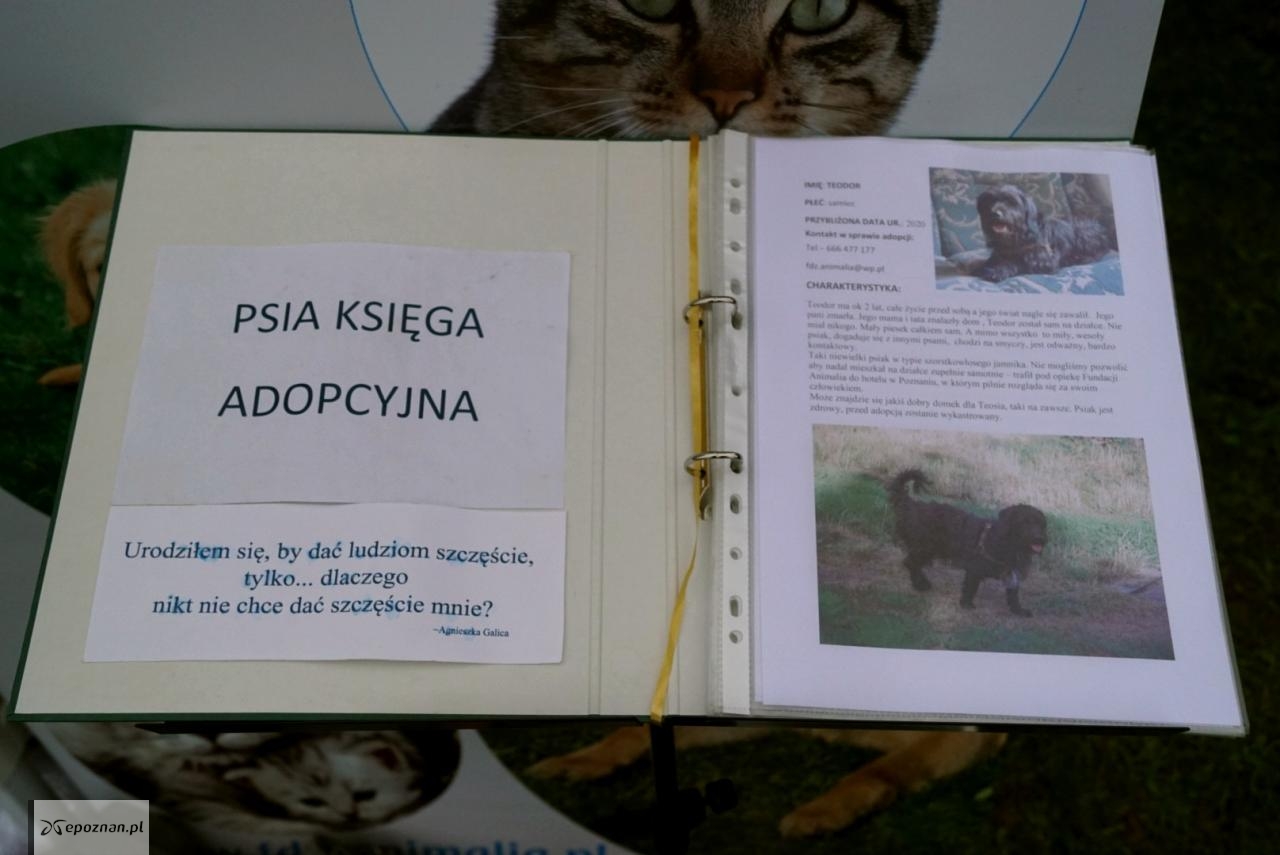 PSIA KSIĘGA
ADOPCYJNA
Urodziłem się, by dać ludziom szczęście,
tylko... dlaczego
nikt nie chce dać szczęście mnie?
~Agnieszka Galica
IMIĘ: TEODOR
PŁEĆ: samiec
PRZYBLIŻONA DATA UR.: 2020
Kontakt w sprawie adopcji:
Tel – 666 477 177
fdz.animalia@wp.pl
CHARAKTERYSTYKA:
Teodor ma ok 2 lat, całe życie przed sobą a jego świat nagle się zawalił. Jego
pani zmarła. Jego mama i tata znalazły dom , Teodor został sam na działce. Nie
miał nikogo. Mały piesek całkiem sam. A mimo wszystko to miły, wesoły
psiak, dogaduje się z innymi psami, chodzi na smyczy, jest odważny, bardzo
kontaktowy.
Taki niewielki psiak w typie szorstkowłosego jamnika. Nie mogliśmy pozwolić
aby nadal mieszkał na działce zupełnie samotnie – trafił pod opiekę Fundacji
Animalia do hotelu w Poznaniu, w którym pilnie rozgląda się za swoim
człowiekiem.
Może znajdzie się jakiś dobry domek dla Teosia, taki na zawsze. Psiak jest
zdrowy, przed adopcją zostanie wykastrowany.
epoznan.pl